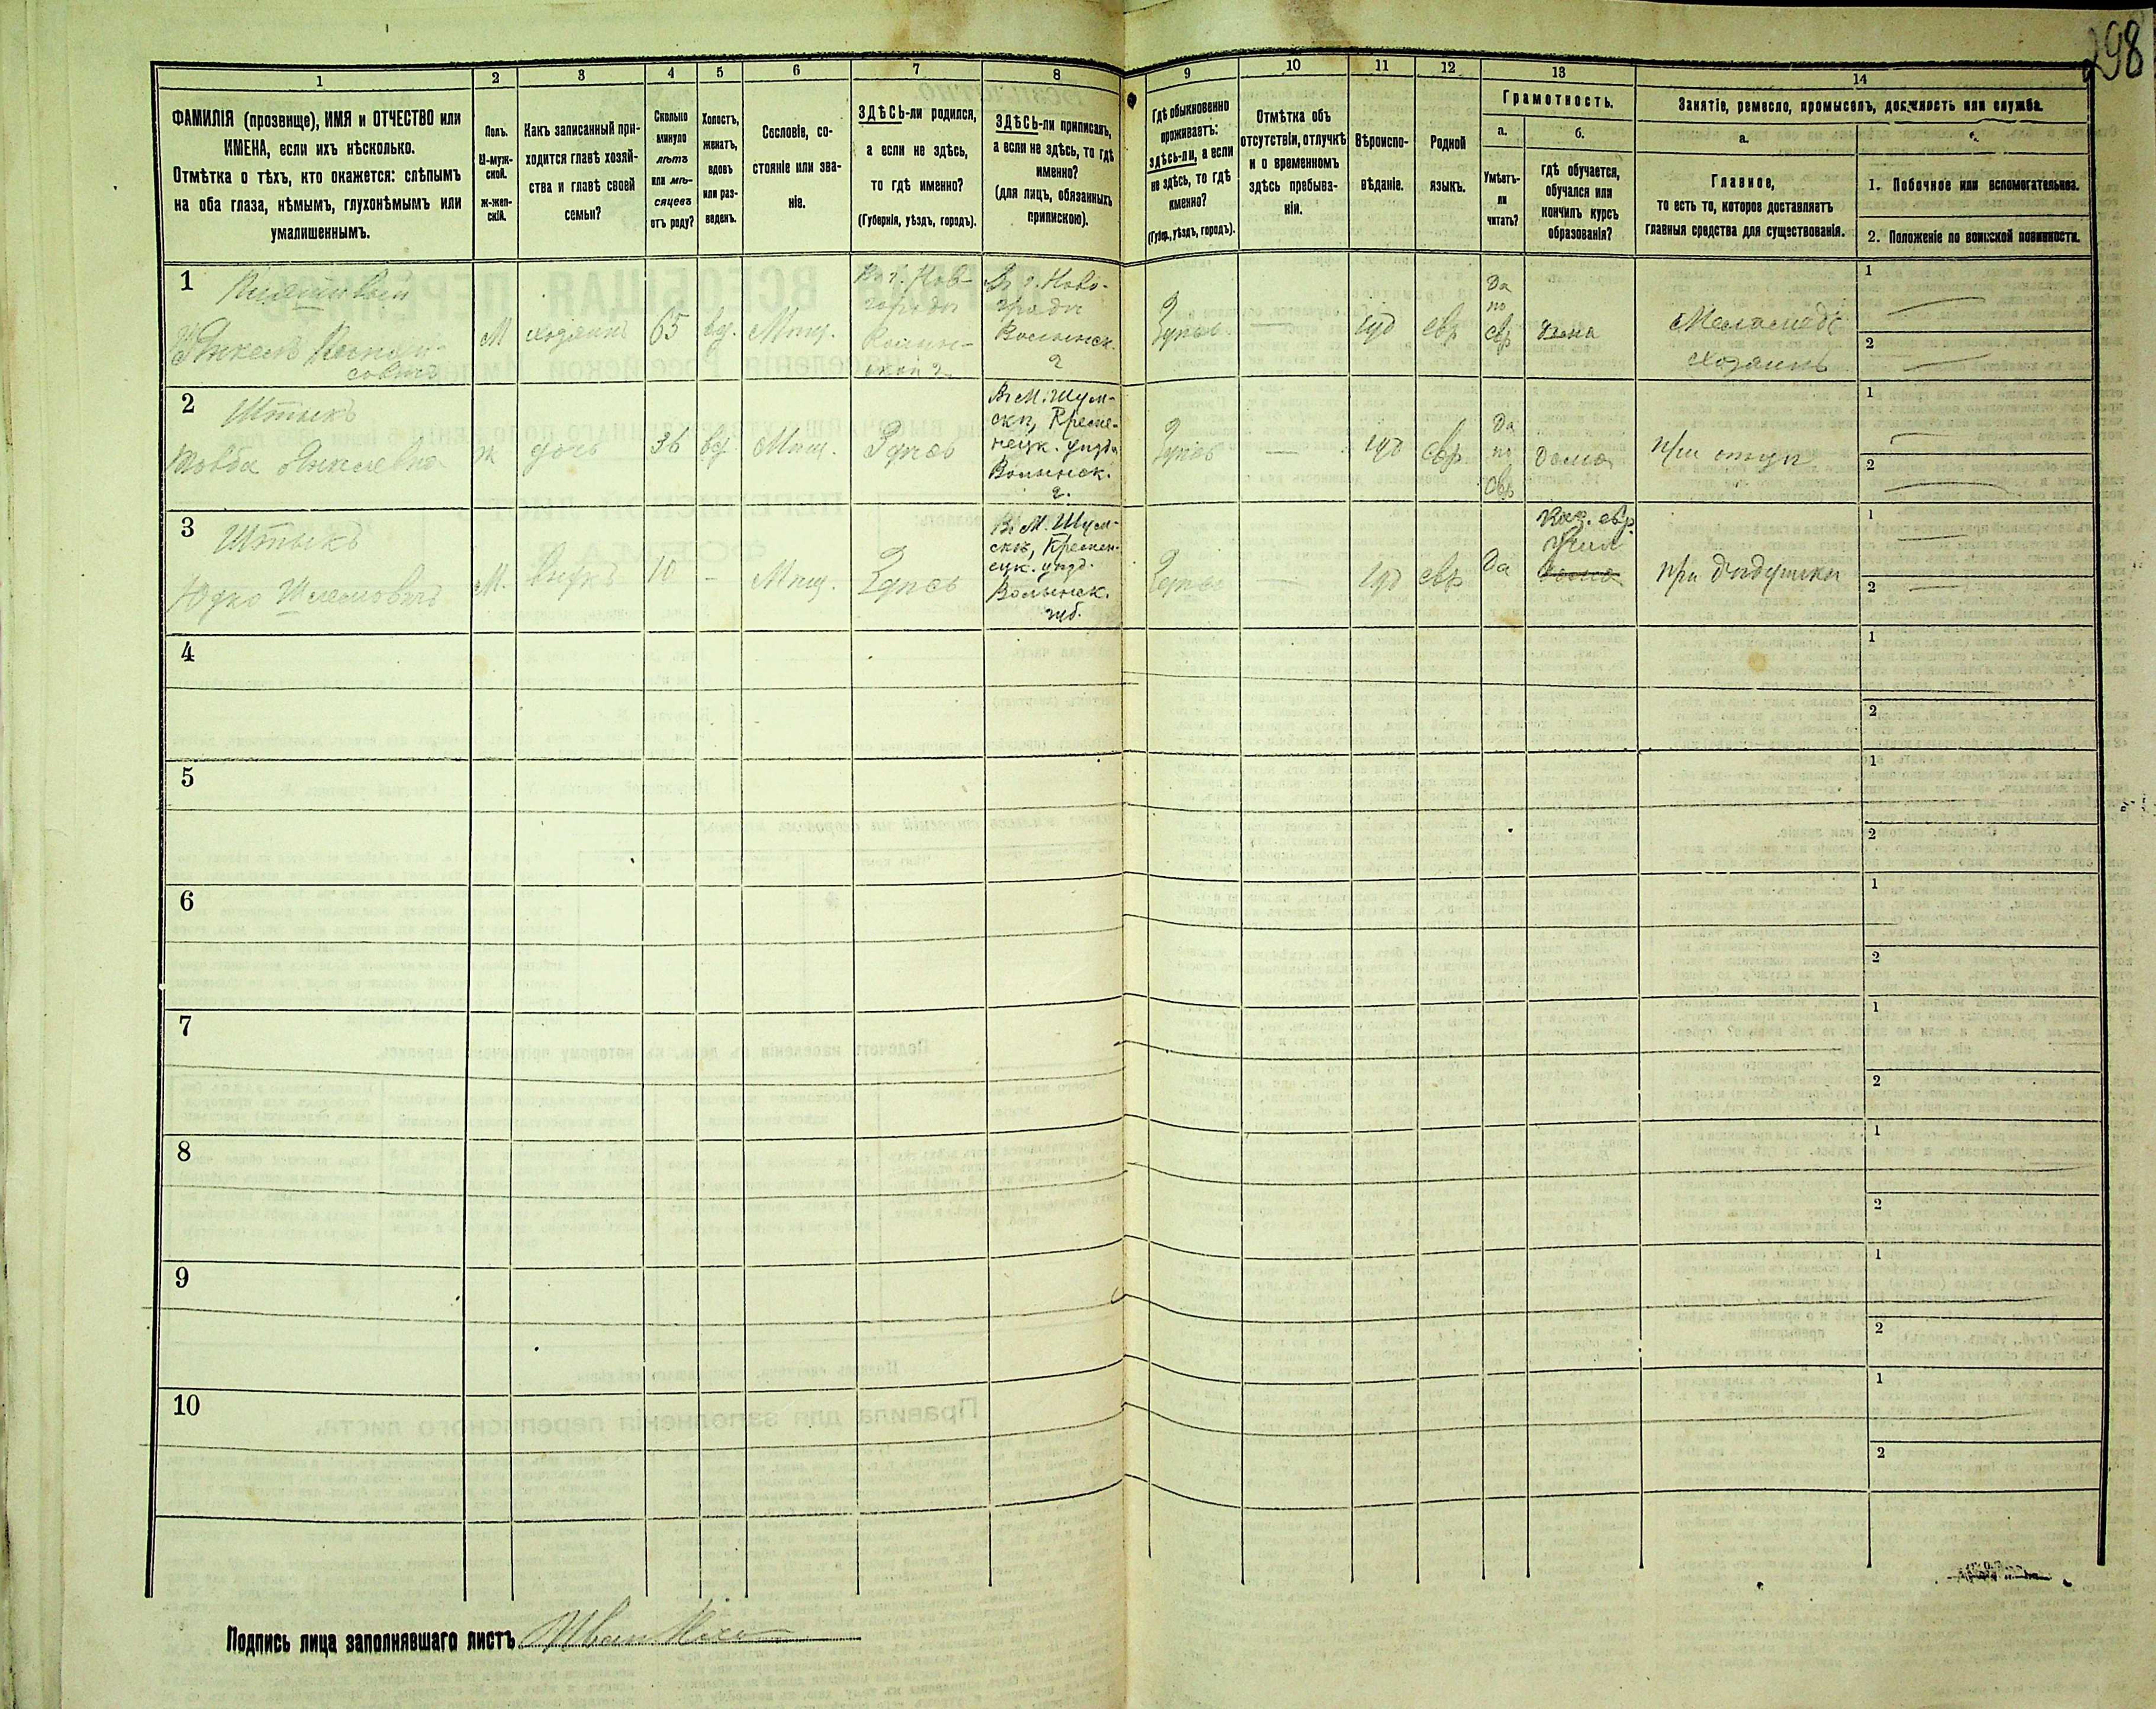 298
1
2
3
4
5
6
7
8
9
10
11
12
13
14
ФАМИЛІЯ (прозвище), ИМЯ и ОТЧЕСТВО или
ИМЕНА, если ихъ нѣсколько.
Отмѣтка о тѣхъ, кто окажется: слѣпымъ
на оба глаза, нѣмымъ, глухонѣмымъ или
умалишеннымъ.
Полъ.
М-муж-
ской.
ж-жен-
скій.
Какъ записанный при-
ходится главѣ хозяй-
ства и главѣ своей
семьи?
Сколько
минуло
лѣтъ
или мѣ-
сяцевъ
отъ роду?
Холостъ,
женатъ,
вдовъ
или раз-
веденъ.
Сословіе, со-
стояніе или зва-
ніе.
ЗДѢСЬ-ли родился,
а если не здѣсь,
то гдѣ именно?
(Губернія, уѣздъ, городъ).
ЗДѢСЬ-ли приписанъ,
а если не здѣсь, то гдѣ
именно?
(для лицъ, обязанныхъ
припискою).
Гдѣ обыкновенно
проживаетъ:
здѣсь-ли, а если
не здѣсь, то гдѣ
именно?
(Губер., уѣздъ, городъ).
Отмѣтка объ
отсутствіи, отлучкѣ
и о временномъ
здѣсь пребыва-
ніи.
Вѣроиспо-
вѣданіе.
Родной
языкъ.
Грамотность.
а.
Умѣетъ-
ли
читать?
б.
гдѣ обучается,
обучался или
кончилъ курсъ
образованія?
Занятіе, ремесло, промыселъ, должность или служба.
а.
Главное,
то есть то, которое доставляетъ
главныя средства для существованія.
1. Побочное или вспомогательное.
2. Положеніе по воинской повинности.
1
Янкель
М
хозяинъ
65
вд.
Мѣщ.
Въ г. Нов-
Въ г. Ново-
градѣ
Волынск.
г
Здѣсь
—
іуд
евр
Да
по
евр
дома
Меламедъ
хозяинъ
1
—
2
—
2
Штыкъ
Янкелевна
ж
дочь
36
вд
Мѣщ.
Здѣсь
Въ М. Шум-
скѣ, Креме-
нецк. уѣзда
Волынск.
г.
Здѣсь
—
іуд
евр
Да
по
евр
дома
при отцѣ
1
—
2
—
3
Штыкъ
Юдко Шлемовичъ
М.
внукъ
10
-
Мѣщ.
Здѣсь
Въ М. Шум-
скѣ, Кремен-
ецк. уѣзд.
Волынск.
губ.
Здѣсь
—
іуд
евр
Да
Каз. евр.
Учил
дома
при дѣдушкѣ
1
—
2
—
4
1
2
5
1
2
6
1
2
7
1
2
8
1
2
9
1
2
10
1
2
Подпись лица заполнявшаго листъ